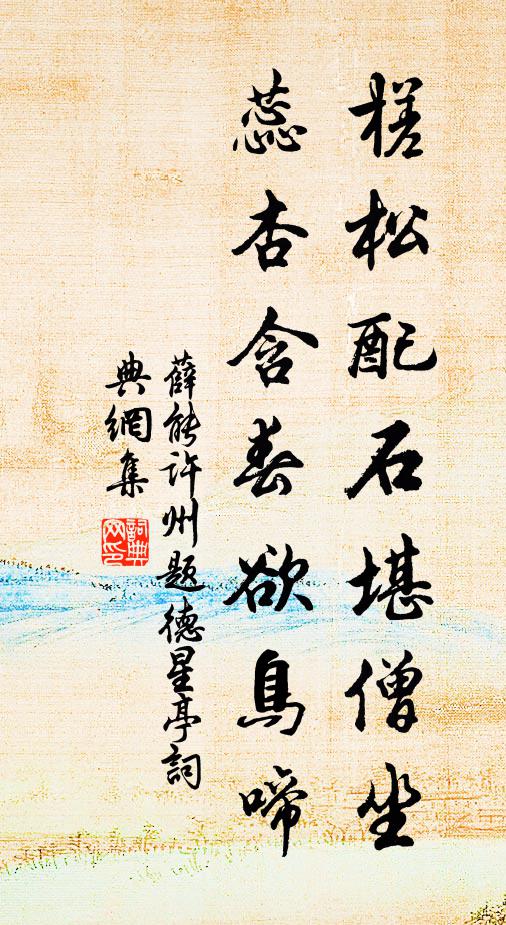 槎松配石堪僧坐
蕊杏含春欲鳥啼
薛能許州題德星亭詞
典網集
詞典
网印